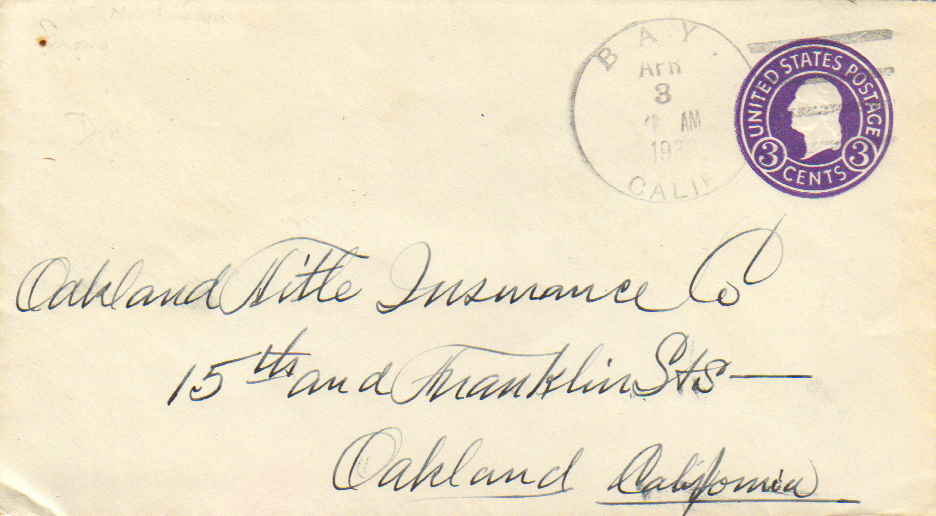 BAY. CALIF
APR
3
AM
UNITED STATES POSTAGE
3 CENTS 3
Oakland Title Insurance Co
15th and Franklin Sts —
Oakland California